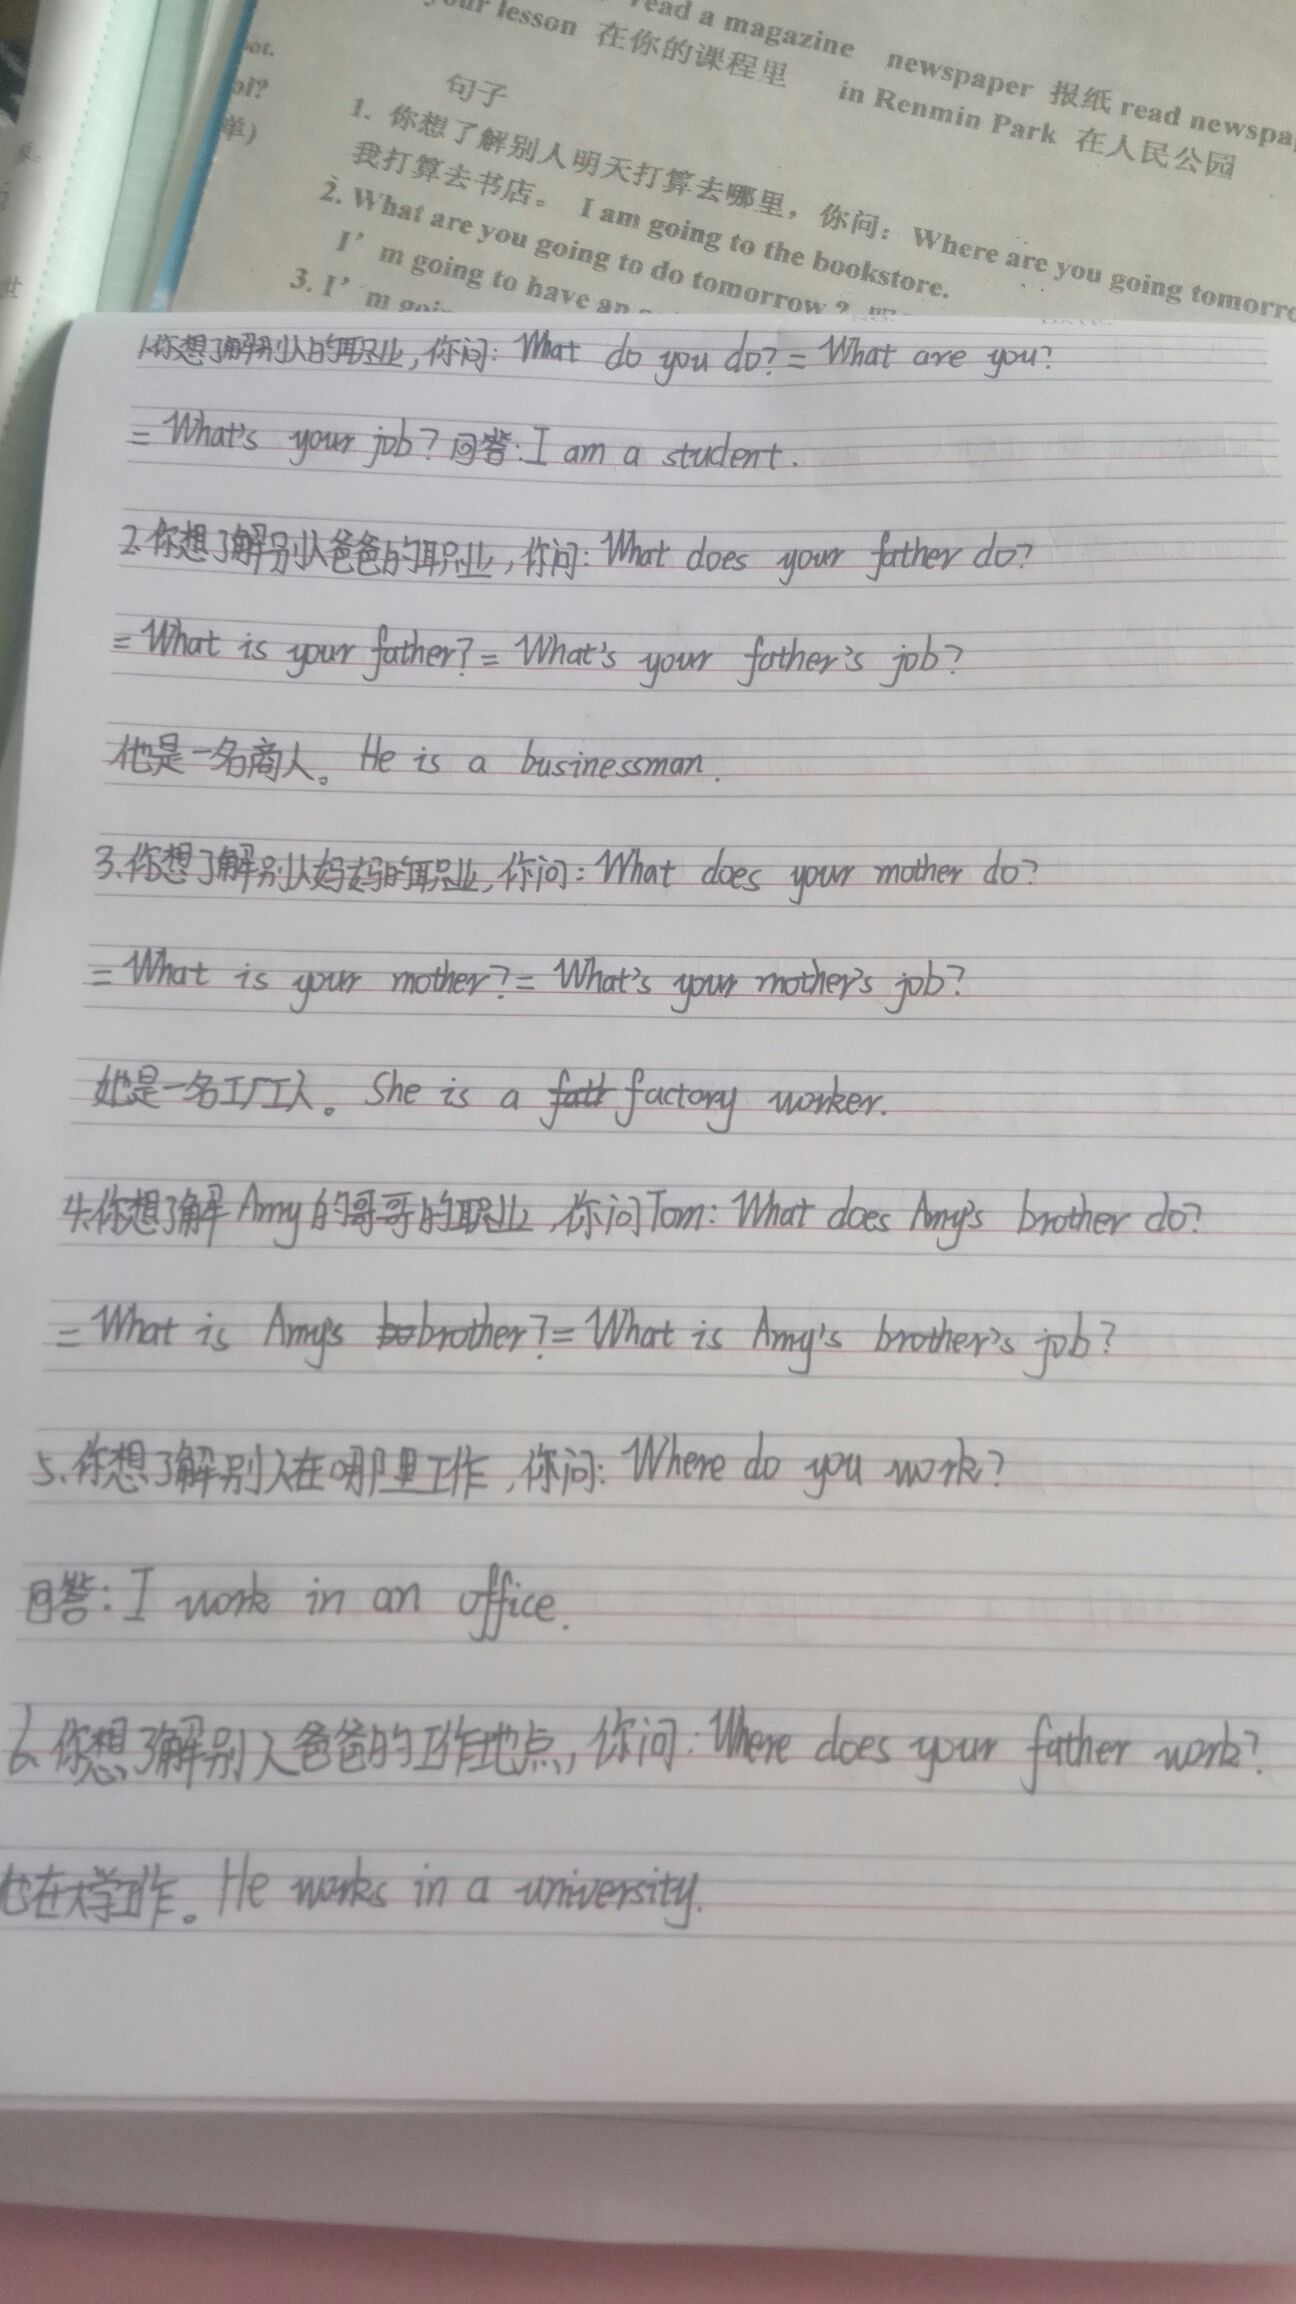 read a magazine newspaper 报纸 read
your lesson 在你的课程里 in Renmin Park 在人民公园
句子
1. 你想了解别人明天打算去哪里，你问：Where are you going
我打算去书店。 I am going to the bookstore.
2. What are you going to do tomorrow?
I'm going to have an
3. I'm
单)
1.你想了解别人的职业,你问: What do you do? = What are you?
= What's your job? 回答: I am a student.
2.你想了解别人爸爸的职业,你问: What does your father do?
= What is your father? = What's your father's job?
他是一名商人。 He is a businessman.
3.你想了解别人妈妈的职业,你问: What does your mother do?
= What is your mother? = What's your mother's job?
她是一名工厂工人。 She is a factory worker.
4.你想了解Amy的哥哥的职业,你问Tom: What does Amy's brother do?
= What is Amy's brother? = What is Amy's brother's job?
5.你想了解别人在哪里工作,你问: Where do you work?
回答: I work in an office.
6.你想了解别人爸爸的工作地点,你问: Where does your father work?
他在大学工作。 He works in a university.